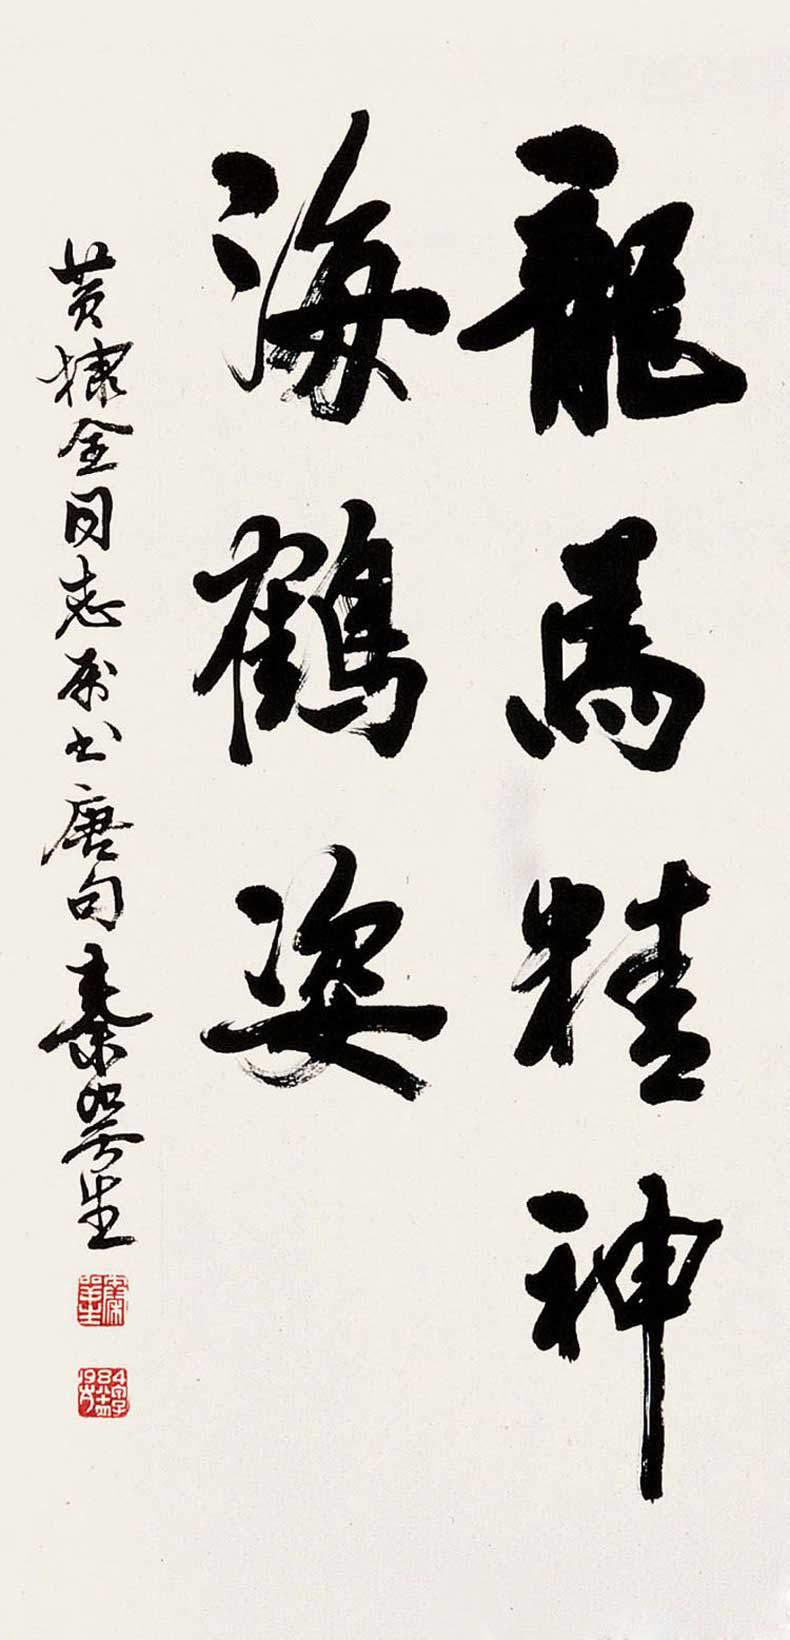 龍馬精神
海鶴姿
黄棣全同志属书唐句秦咢生
秦咢生
1984